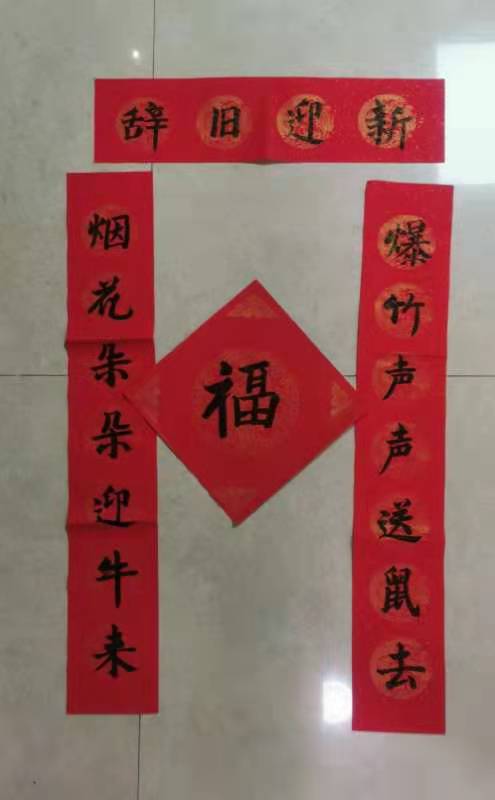 辞旧迎新
爆竹声声送鼠去
烟花朵朵迎牛来
福